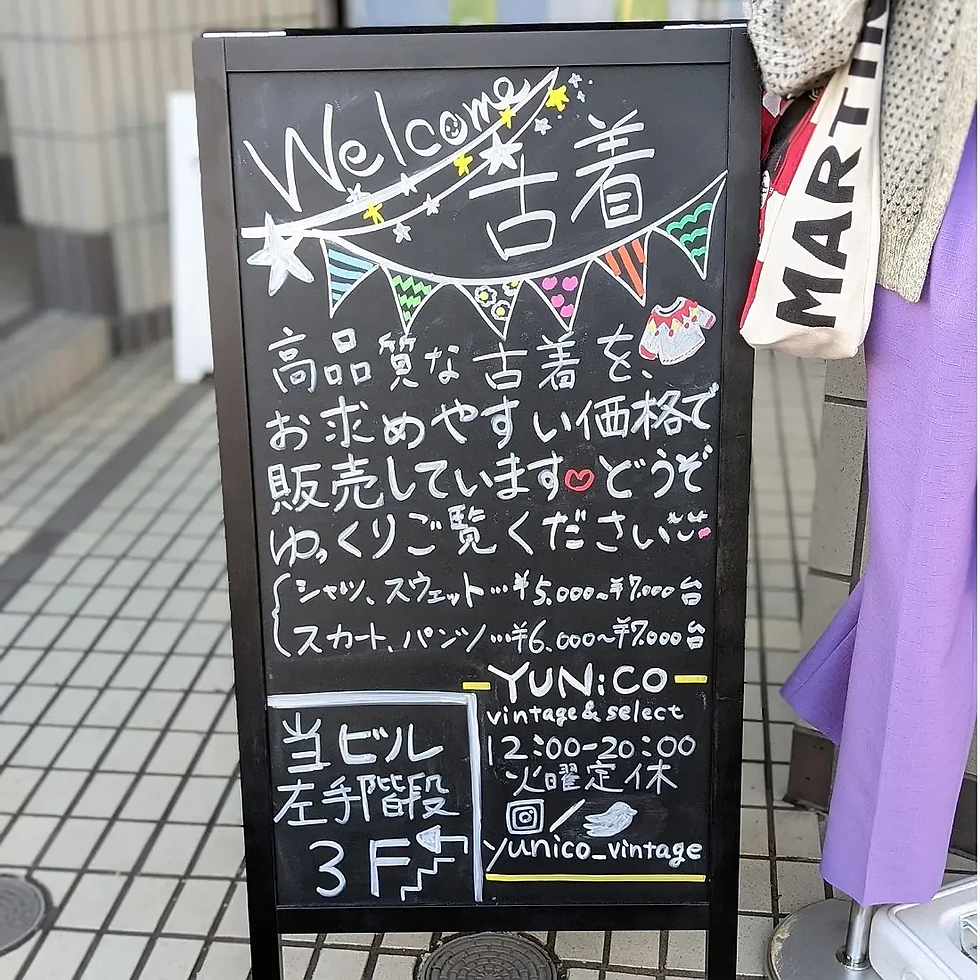 Welcome
古着
高品質な古着を、
お求めやすい価格で
販売しています♡どうぞ
ゆっくりご覧ください
シャツ、スウェット…¥5,000~¥7,000台
スカート、パンツ…¥6,000~¥7,000台
当ビル
左手階段
3F
YUN:CO
vintage & select
12:00-20:00
火曜定休
/
yunico_vintage
MARTIN